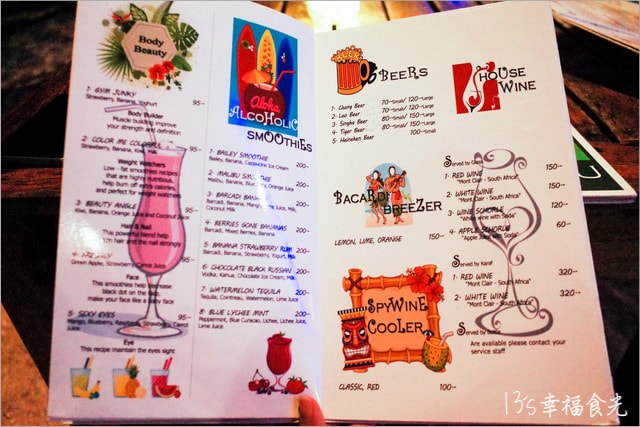 Body
Beauty
1· GYIM JUNKY 95-
Strawberry, Banana, Joghurt
Body Builder
Muscle building improve
your strength and definition
2· COLOR ME COLORFUL 95-
Banana, Orange Juice, Milk
Weight Watchers
Low - fat smoothies recipes
that are highly nutritional,
help burn off extra calories
and perfect for weight watchers
3· BEAUTY ANGLE 95-
Kiwi, Banana, Orange Juice and Coconut Milk
Hair & Nail
This powerful blend help
rich hair and the nail strongly
4· FRESHLY 95-
Green Apple, Strawberry and Lime Juice
Face
This smoothies help decrease
black dot on the face,
make your face like a baby face
5· SEXY EYES 95-
Mango, Blueberry, Raspberry, Strawberry, Carrot
Juice
Eye
This recipe maintain the eyes sight
Aloha
ALCOHOLIC
SMOOTHIES
1· BAILEY SMOOTHIE 200-
Bailey, Banana, Cappucino Ice Cream
2· MALIBU SMOOTHIE 200-
Malibu, Banana, Blueberry, Orange Juice
3· BARCADI BANANA 200-
Barcadi, Banana, Mango, Lime Juice, Milk,
Coconut Milk
4· BERRIES GONE BANANAS 200-
Barcadi, Mixed Berries, Banana
5· BANANA STRAWBERRY RUM 200-
Barcadi, Banana, Strawberry, Yogurt, Milk
6· CHOCOLATE BLACK RUSSIAN 200-
Vodka, Kahlua, Chocolate Ice Cream, Milk
7· WATERMELON TEQUILA 200-
Tequila, Cointreau, Watermelon, Lime Juice
8· BLUE LYCHEE MINT 200-
Peppermint, Blue Curacao, Lichee, Lichee Juice,
Lime Juice
BEER
BEERS
1· Chang Beer 70-Small/ 120-Large
2· Leo Beer 70-Small/ 120-Large
3· Singha Beer 80-Small/ 150-Large
4· Tiger Beer 80-Small/ 150-Large
5· Heineken Beer 100-Small
BACARDI
BREEZER
LEMON, LIME, ORANGE 150--
SPYWINE
COOLER
CLASSIC, RED 100--
HOUSE
WINE
Served by Glass
1· RED WINE 150--
"Mont Clair - South Africa"
2· WHITE WINE 150--
"Mont Clair - South Africa"
3· WINE SCHORLE 120--
"White wine with Soda"
4· APPLE SCHORLE 60--
"Apple juice with Soda"
Served by Karaf
1· RED WINE 320--
"Mont Clair - South Africa"
2· WHITE WINE 320--
"Mont Clair - South Africa"
Served by Bottle
Are available please contact your
service staff
13's幸福食光